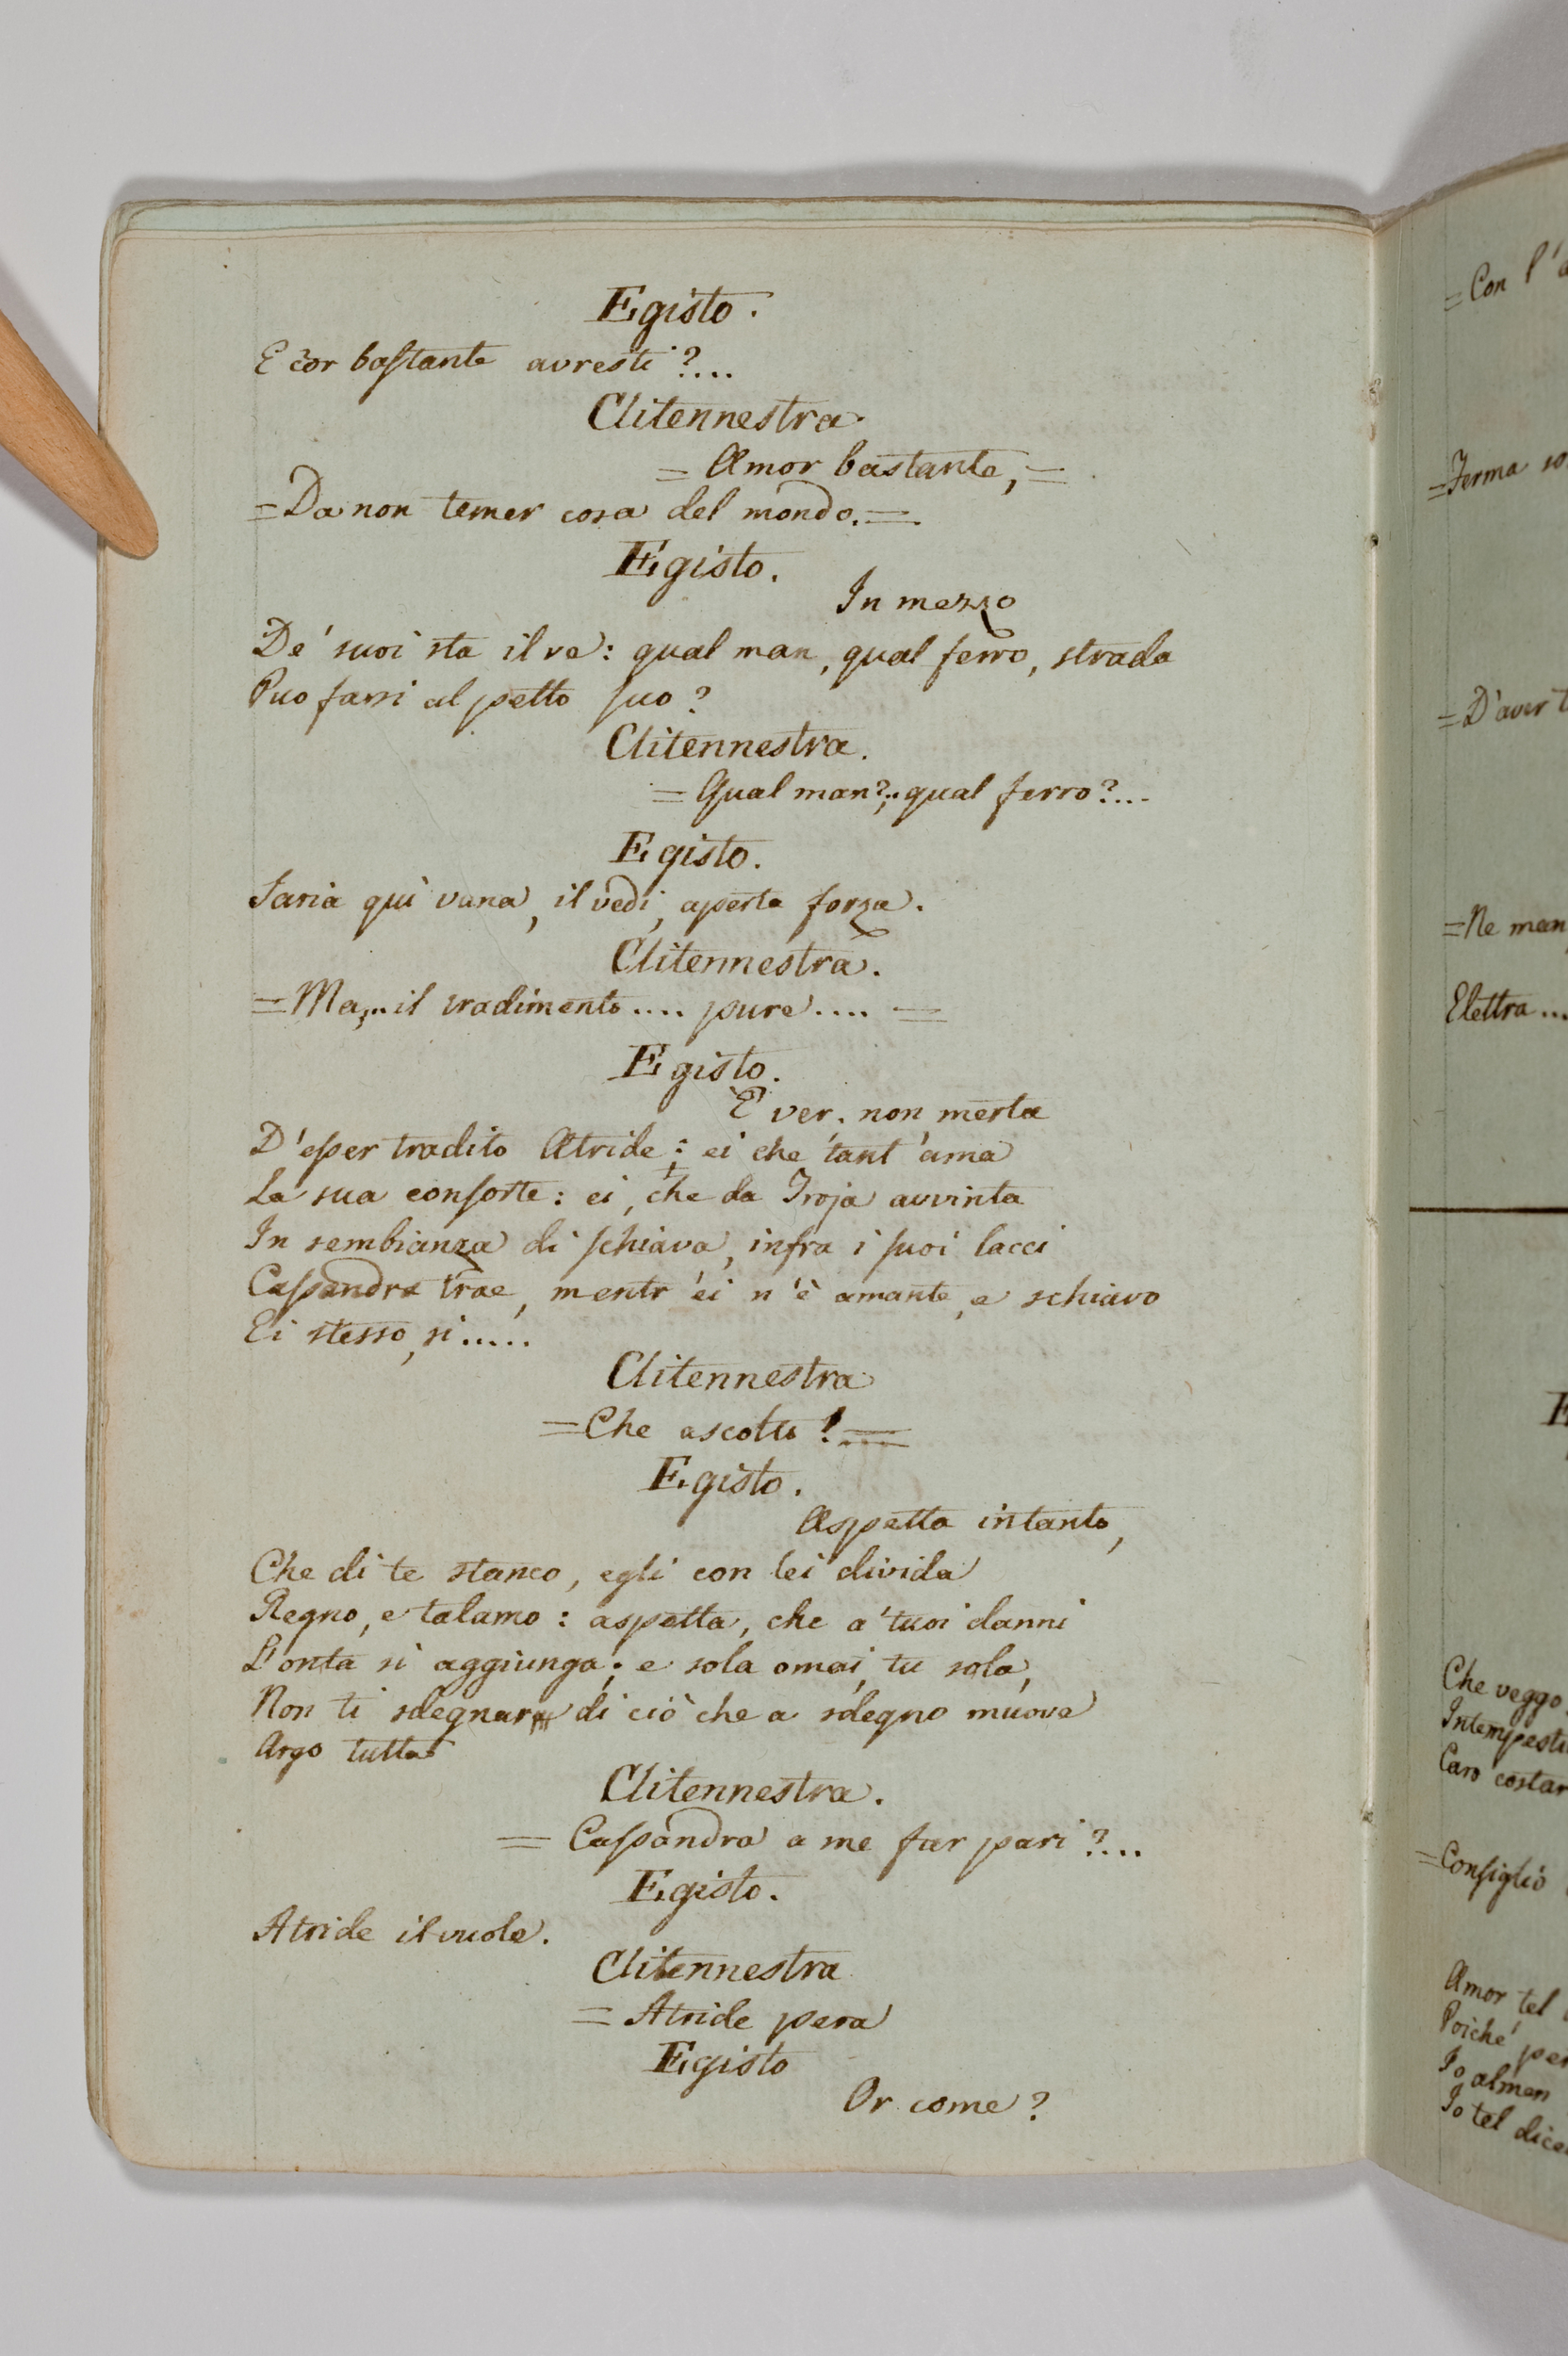 Egisto.
E cor baſtante avresti?...
Clitennestra.
= Amor bastante, =
= Da non temer cosa del mondo. =
Egisto.
In mezzo
De' suoi sta il re: qual man, qual ferro, strada
Puo farsi al petto ſuo?
Clitennestra.
= Qual man?.. qual ferro?...
Egisto.
Saria quì vana, il vedi, aperta forza.
Clitennestra.
= Ma,.. il tradimento.... pure.... =
Egisto.
E' ver, non merta
D'eſser tradito Atride: ei che tant'ama
La sua conſorte: ei, che da Troja avvinta
In sembianza di ſchiava, infra i ſuoi lacci
Caſsandra trae, mentr'ei n'è amante, e schiavo
Ei stesso, si.....
Clitennestra
= Che ascolto! =
Egisto.
Aspetta intanto,
Che di te stanco, egli con lei divida
Regno, e talamo: aspetta, che a' tuoi danni
L'onta si aggiunga; e sola omai, tu sola,
Non ti sdegnar di ciò che a sdegno muove
Argo tutta
Clitennestra.
= Caſsandra a me far pari?...
Egisto.
Atride il vuole.
Clitennestra
= Atride pera
Egisto
Or come?
= Con l'
= Ferma
= D'aver
= Ne man
Elettra...
Che veggo
Caro costar
= Conſiglio
Amor, tel
Poichè
Io almen
Io tel